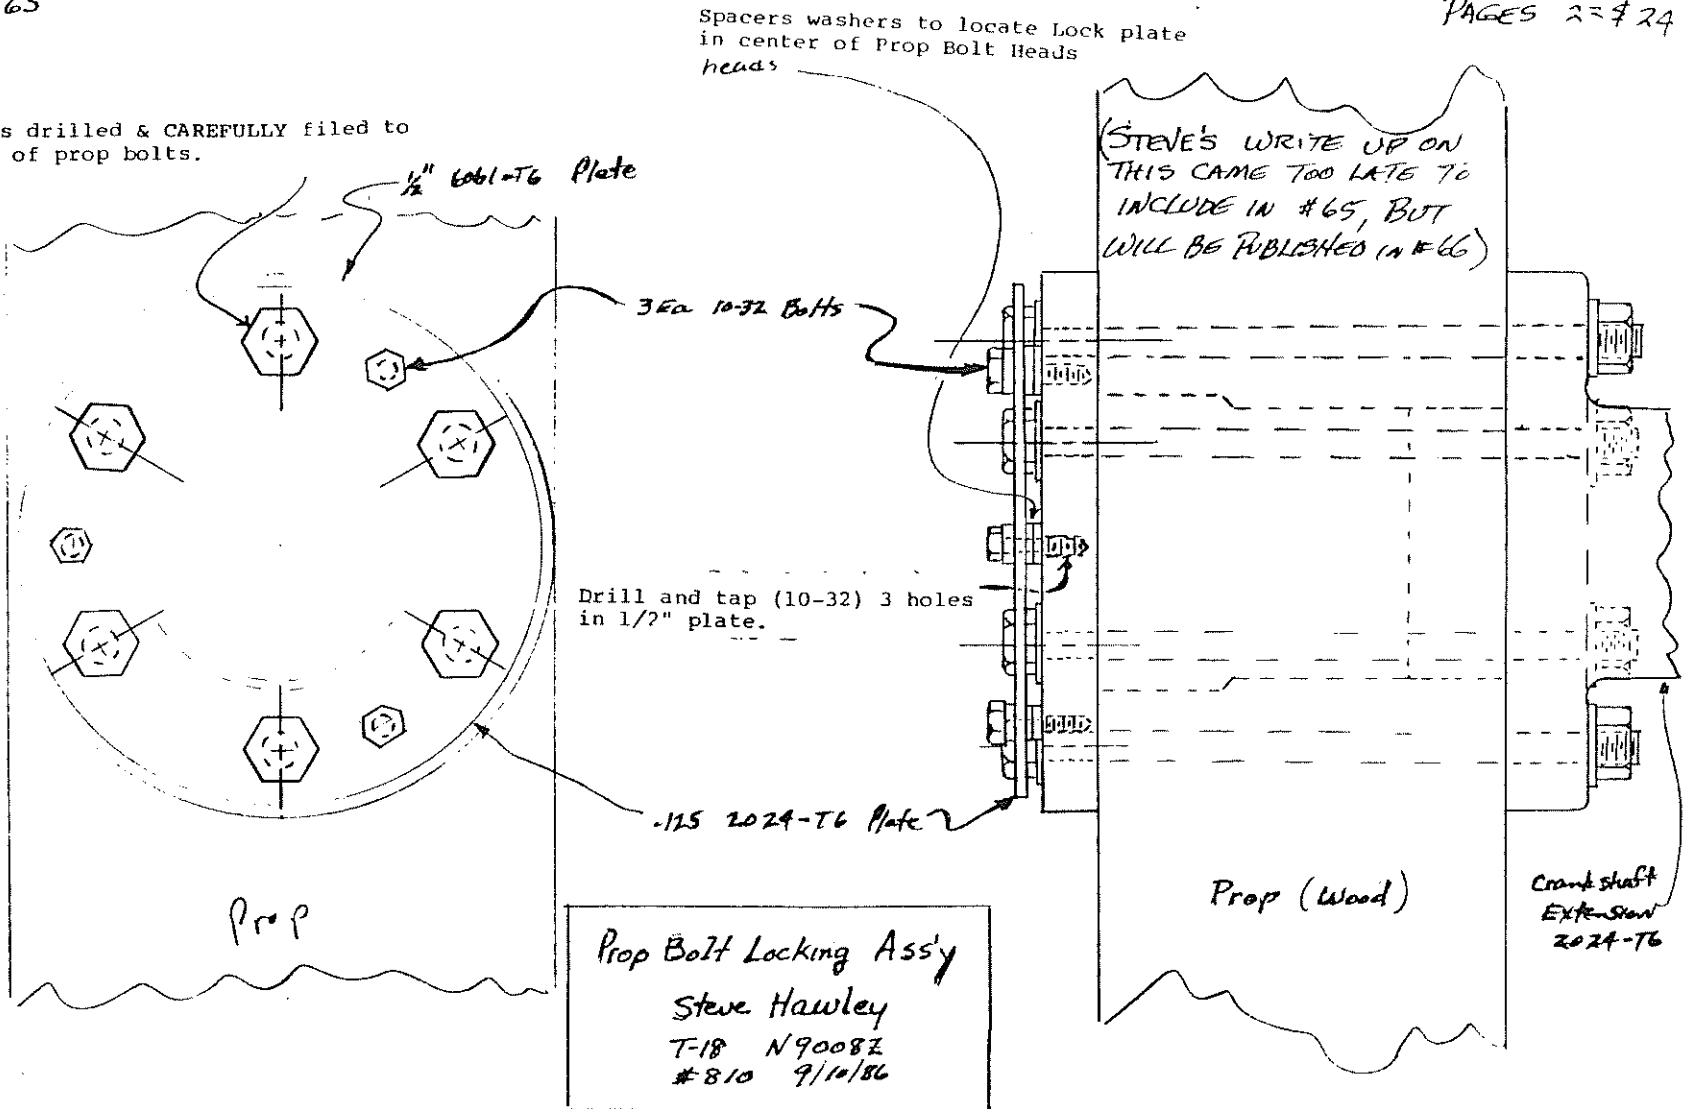 65
PAGES 22 & 24
Spacers washers to locate Lock plate
in center of Prop Bolt Heads
heads
s drilled & CAREFULLY filed to
of prop bolts.
1/2" 6061-T6 Plate
(STEVE'S WRITE UP ON
THIS CAME TOO LATE TO
INCLUDE IN #65, BUT
WILL BE PUBLISHED IN #66)
3 Ea 10-32 Bolts
Drill and tap (10-32) 3 holes
in 1/2" plate.
.125 2024-T6 Plate
Prop
Prop (Wood)
Crankshaft
Extension
2024-T6
Prop Bolt Locking Ass'y
Steve Hawley
T-18 N9008Z
#810 9/10/86